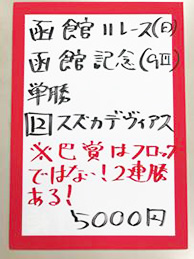 函館11レース(日)
函館記念(GⅢ)
単勝
12 スズカデヴィアス
※巴賞はフロック
ではない！2連勝
ある！
5000円